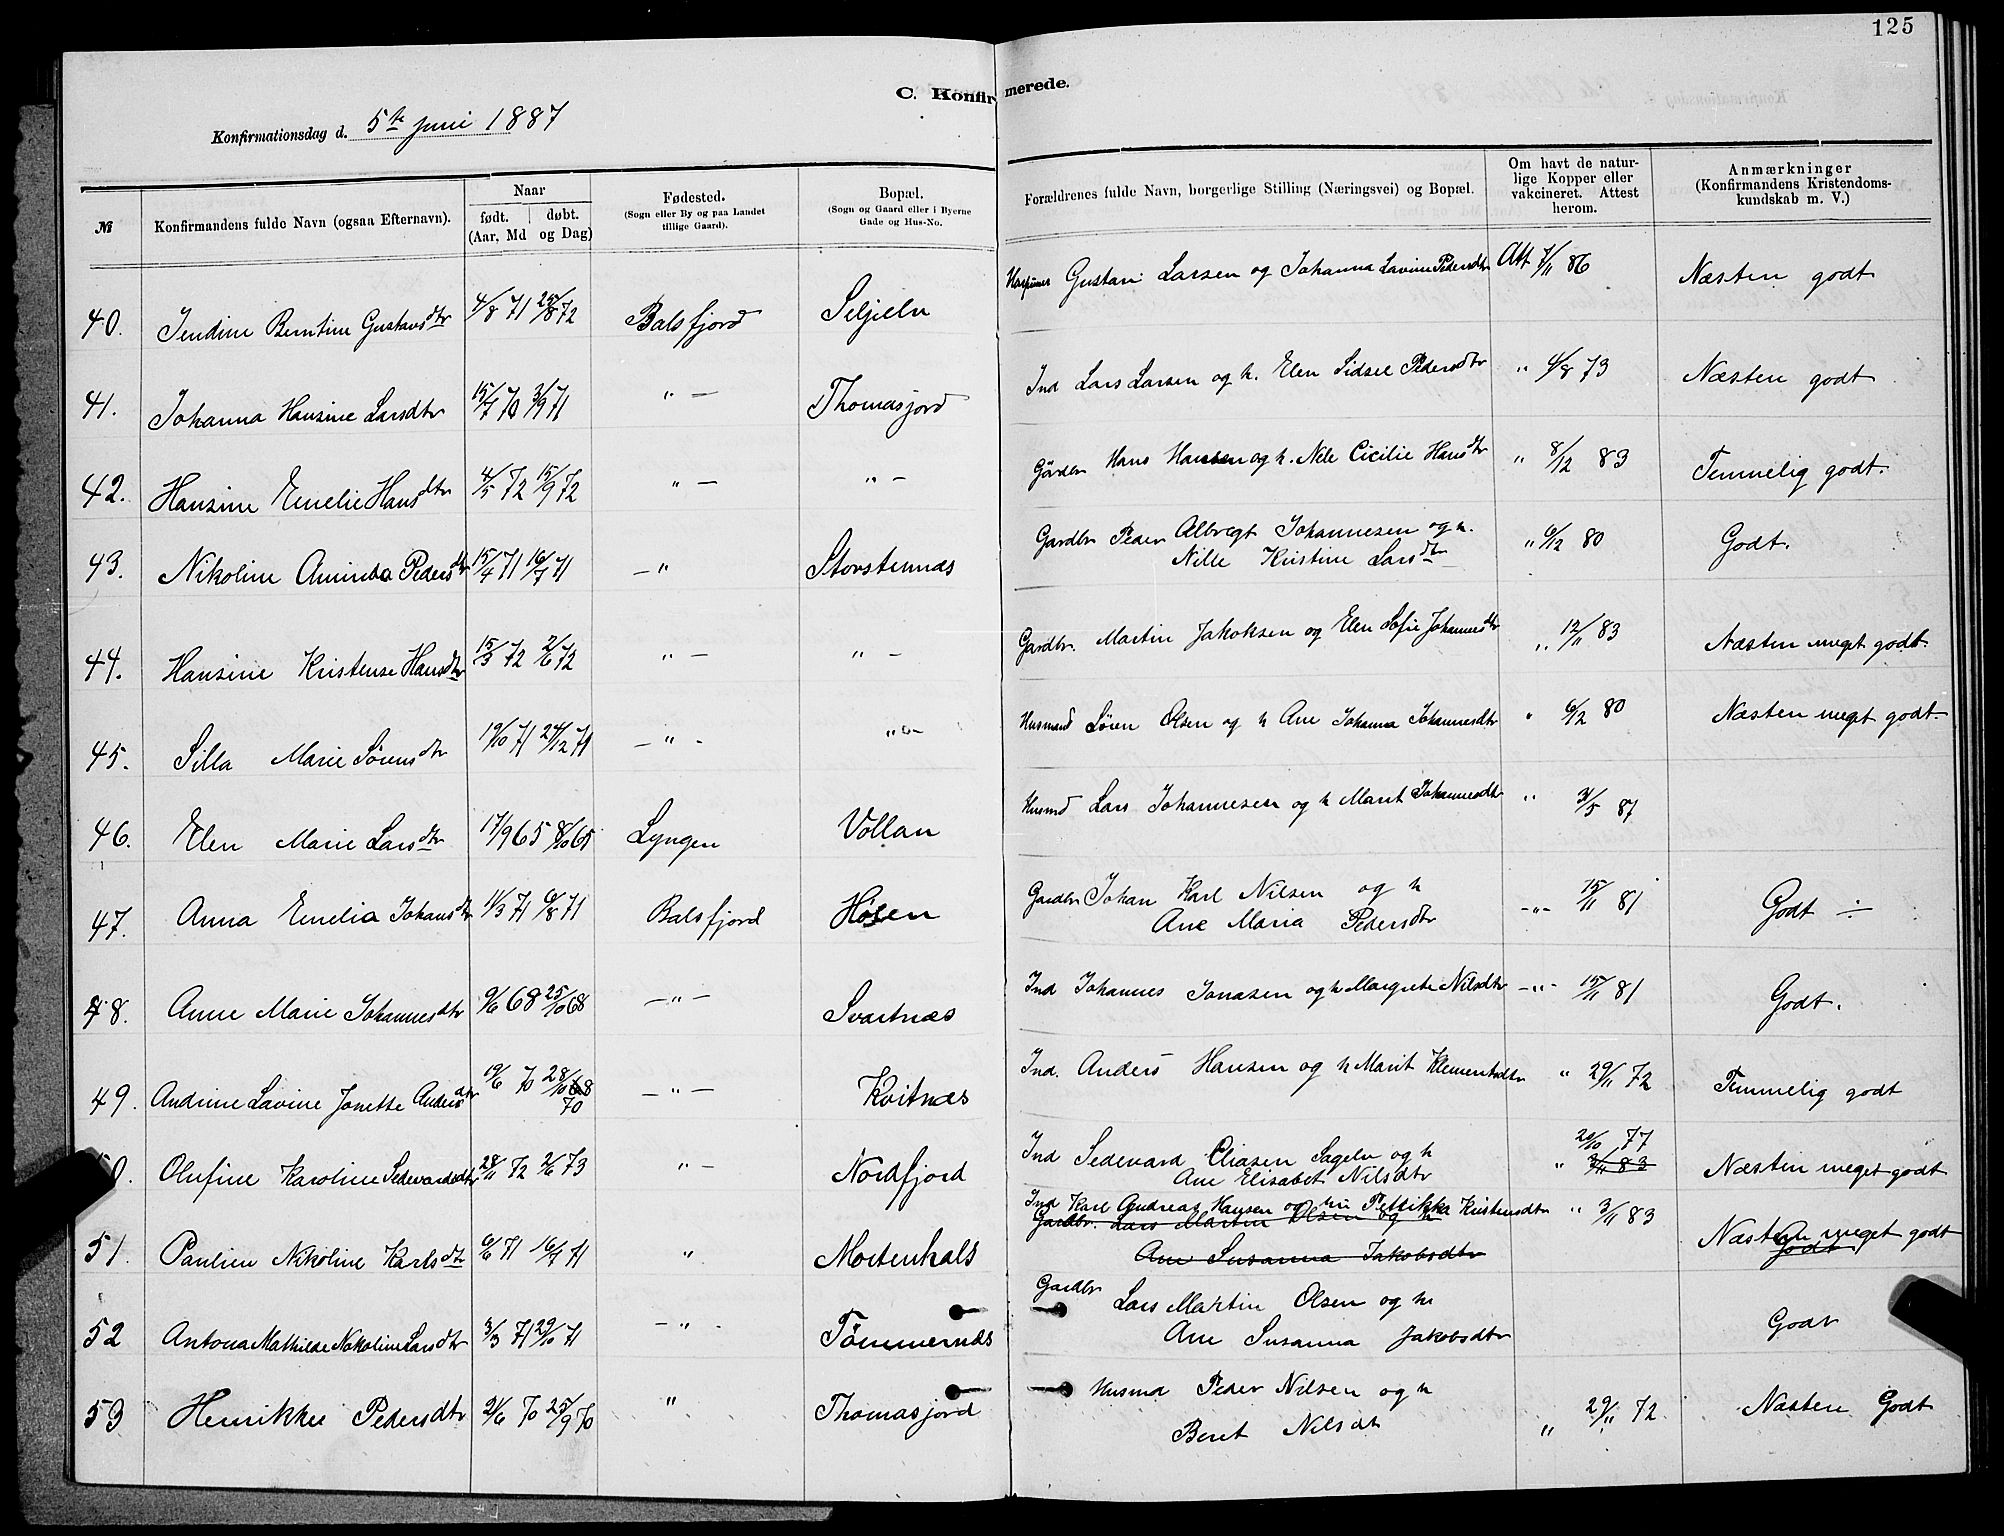 125
C. Konfirmerede.
Konfirmationsdag d. 5te juni 1887
№
Konfirmandens fulde Navn (ogsaa Efternavn).
Naar
født. døbt.
(Aar, Md og Dag)
Fødested.
(Sogn eller By og paa Landet
tillige Gaard).
Bopæl.
(Sogn og Gaard eller i Byerne
Gade og Hus-No.
Forældrenes fulde Navn, borgerlige Stilling (Næringsvei) og Bopæl.
Om havt de natur-
lige Kopper eller
vakcineret. Attest
herom.
Anmærkninger
(Konfirmandens Kristendoms-
kundskab m. V.)
40. Jendine Berntine Gustavsdtr 4/8 71 25/8 72 Balsfjord Seljelv Gustav Larsen og Johanna Lavine Pedersdtr Att 7/11 86 Næsten godt
41. Johanna Hansine Larsdtr 15/7 70 3/9 71 " — Thomasjord Ind Lars Larsen og h. Elen Sidsel Pedersdtr " 4/8 73 Næsten godt
42. Hansine Emelie Hansdtr 4/5 72 15/9 72 " — " — Gårdbr Hans Hansen og h. Nele Cicilie Hansdtr " 8/12 83 Temmelig godt.
43. Nikoline Aminda Pedersdtr 15/4 71 16/7 71 — " Storstennæs Gardbr Peder Albregt Johannesen og h.
Nille Kristine Larsdtr " 6/12 80 Godt.
44. Hansine Kristense Hansdtr 15/3 72 2/6 72 " — " — Gardbr. Martin Jakobsen og Elen Sofie Johannesdtr " 12/11 83 Næsten meget godt.
45. Silla Marie Sørensdtr 19/10 71 27/12 71 — " - " — Husmand Søren Olsen og h Ane Johanna Johannesdtr " 6/12 80 Næsten meget godt
46. Elen Marie Larsdtr 17/9 65 8/10 65 Lyngen Vollan Husmd Lars Johannesen og h Marit Johannesdtr " 3/5 87
47. Anna Emelia Johansdtr 11/3 71 6/8 71 Balsfjord Høsen Gardbr Johan Karl Nilsen og h
Ane Maria Pedersdtr — " - 15/11 81 Godt ÷
48. Anne Marie Johannesdtr 9/6 68 25/10 68 — " — Svartnæs Ind Johannes Jonasen og h Margrete Nilsdtr — " - 15/11 81 Godt.
49. Andrine Lavine Jonette Andersdtr 19/6 70 28/10 68
70 — " — Kvitnæs Ind. Anders Hansen og h Marit Klementsdtr " 29/11 72 Temmelig godt
0. Olufine Karoline Sedevardsdtr 28/11 72 2/6 73 " — Nordfjord Ind Sedevard Eliasen Sagelv og h
Ane Elisabet Nilsdtr 20/10 77
" 3/11 83 Næsten meget godt
51. Paulien Nikoline Karlsdtr 6/6 71 16/7 71 " Mortenhals Ind Karl Andreas Hansen og hu Petrikka Kristensdtr " 3/11 83 Næsten meget godt
Gardbr. Lars Martin Olsen og h Godt
Ane Susanna Jakobsdtr
52 Antona Mathilde Nokoline Larsdtr 3/3 71 29/10 71 — " - Tømmernæs Gardbr Lars Martin Olsen og h
Ane Susanna Jakobsdtr Godt
53 Henrikke Pedersdtr 2/6 70 25/9 70 " Thomasjord Husmd Peder Nilsen og h
Beret Nilsdt " 29/11 72. Næsten Godt